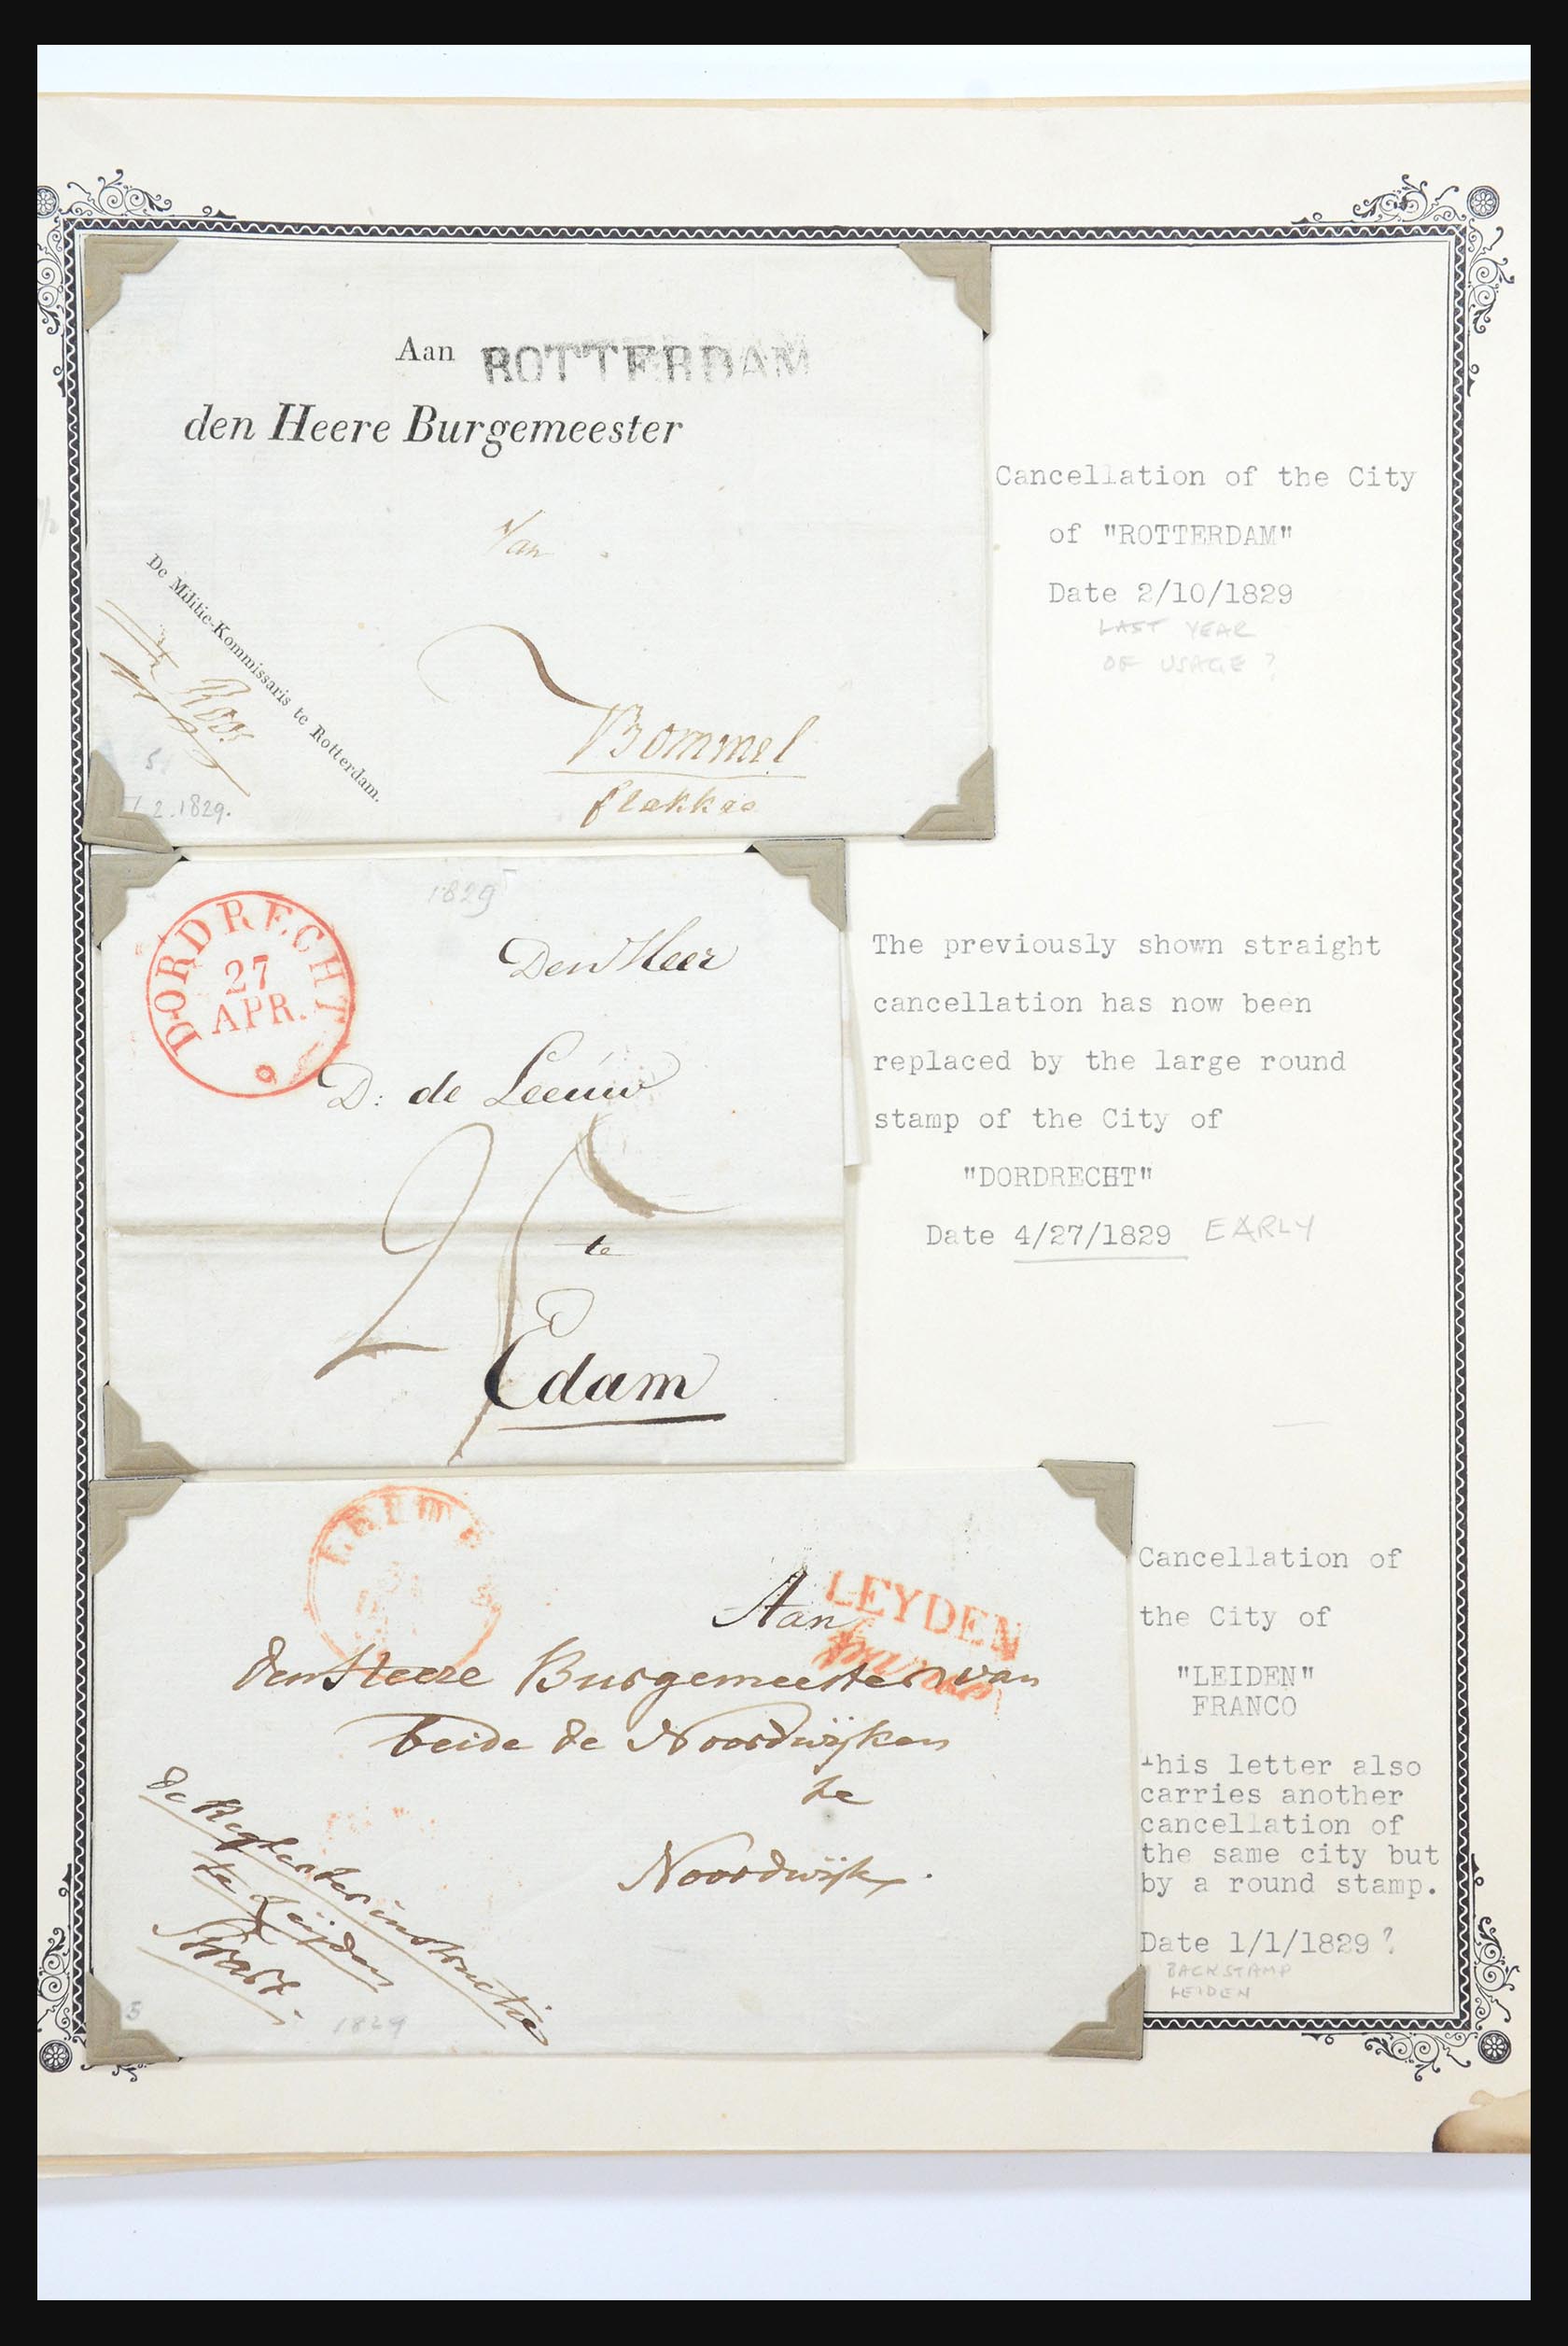 Aan ROTTERDAM
den Heere Burgemeester
Van
De Militie-Kommissaris te Rotterdam.
Bommel
flakkee
2.1829.
Cancellation of the City
of "ROTTERDAM"
Date 2/10/1829
LAST YEAR
OF USAGE?
1829
DORDRECHT
27
APR.
Den Heer
D: de Leeuw
25
te
Edam
The previously shown straight
cancellation has now been
replaced by the large round
stamp of the City of
"DORDRECHT"
Date 4/27/1829 EARLY
LEYDEN
Aan
den Heere Burgemeester van
beide de Noordwijken
te
Noordwijk.
te Leijden
5
1829
Cancellation of
the City of
"LEIDEN"
FRANCO
This letter also
carries another
cancellation of
the same city but
by a round stamp.
Date 1/1/1829?
BACKSTAMP
LEIDEN